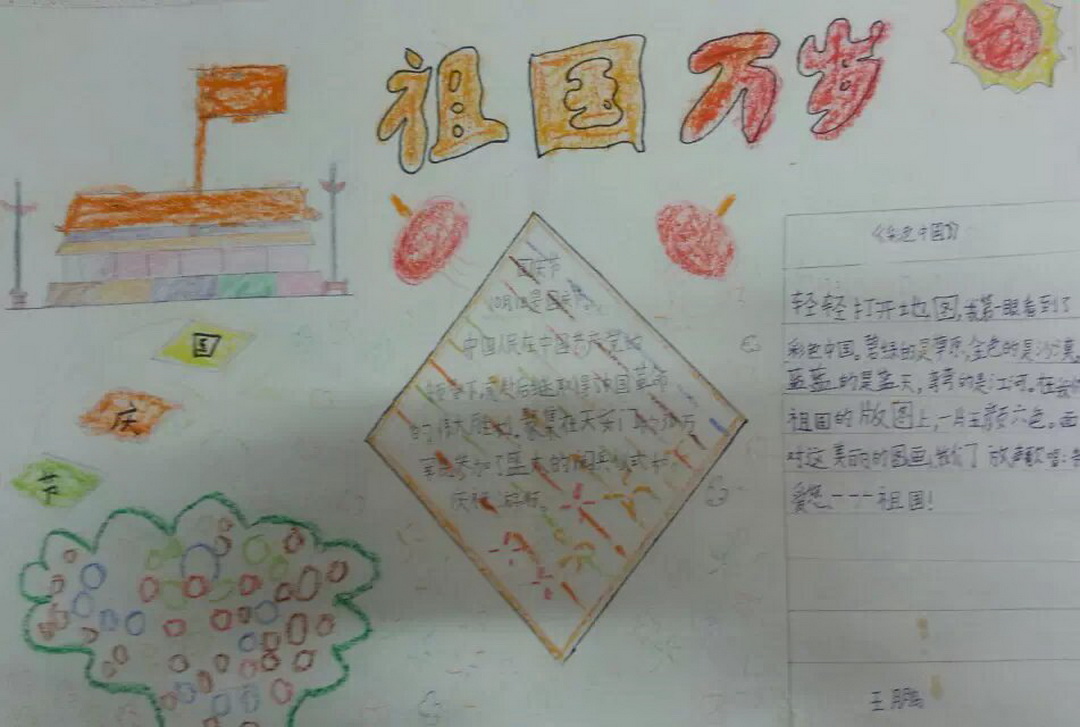 祖国万岁
国
庆
节
国庆节
10月1日是国庆
中国人民在中国共产党的
领导下,前赴后继取得了中国革命
的伟大胜利。聚集在天安门
参加了盛大的阅兵仪式和
庆祝游行。
《彩色中国》
轻轻打开地图,我第一眼看到了
彩色中国。碧绿的是草原,金色的是沙漠,
蓝蓝的是蓝天,弯弯的是江河。在我们
祖国的版图上,一片五颜六色。面
对这美丽的图画,我们了放声歌唱:我
爱您---祖国!
王鹏